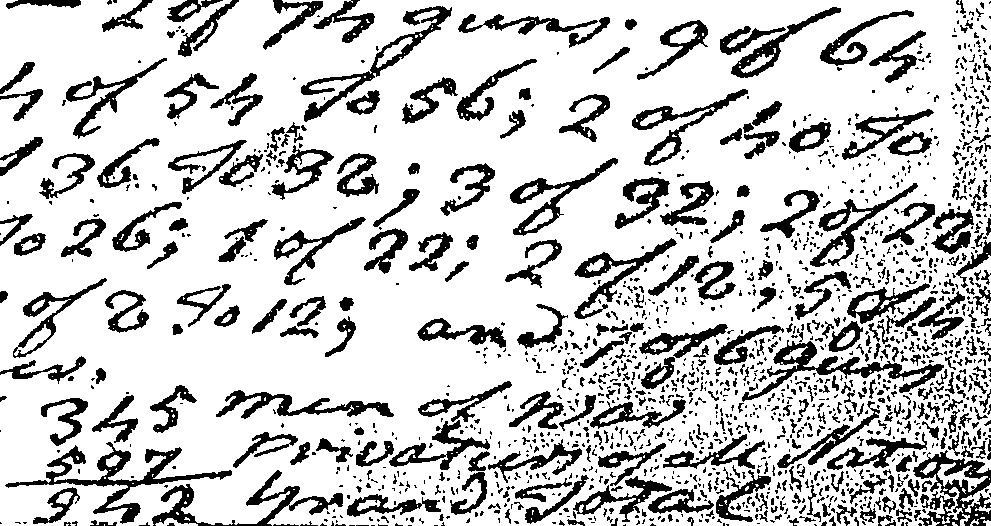 2 of 74 guns; 9 of 64
4 of 54 to 56; 2 of 40 to
36 to 38; 3 of 32; 2 of 28,
to 26; 1 of 22; 2 of 18; 5 of 14
of 8 to 12; and 1 of 6 guns
345 men of War
597 Privatiers of all Nations
942 Grand Total